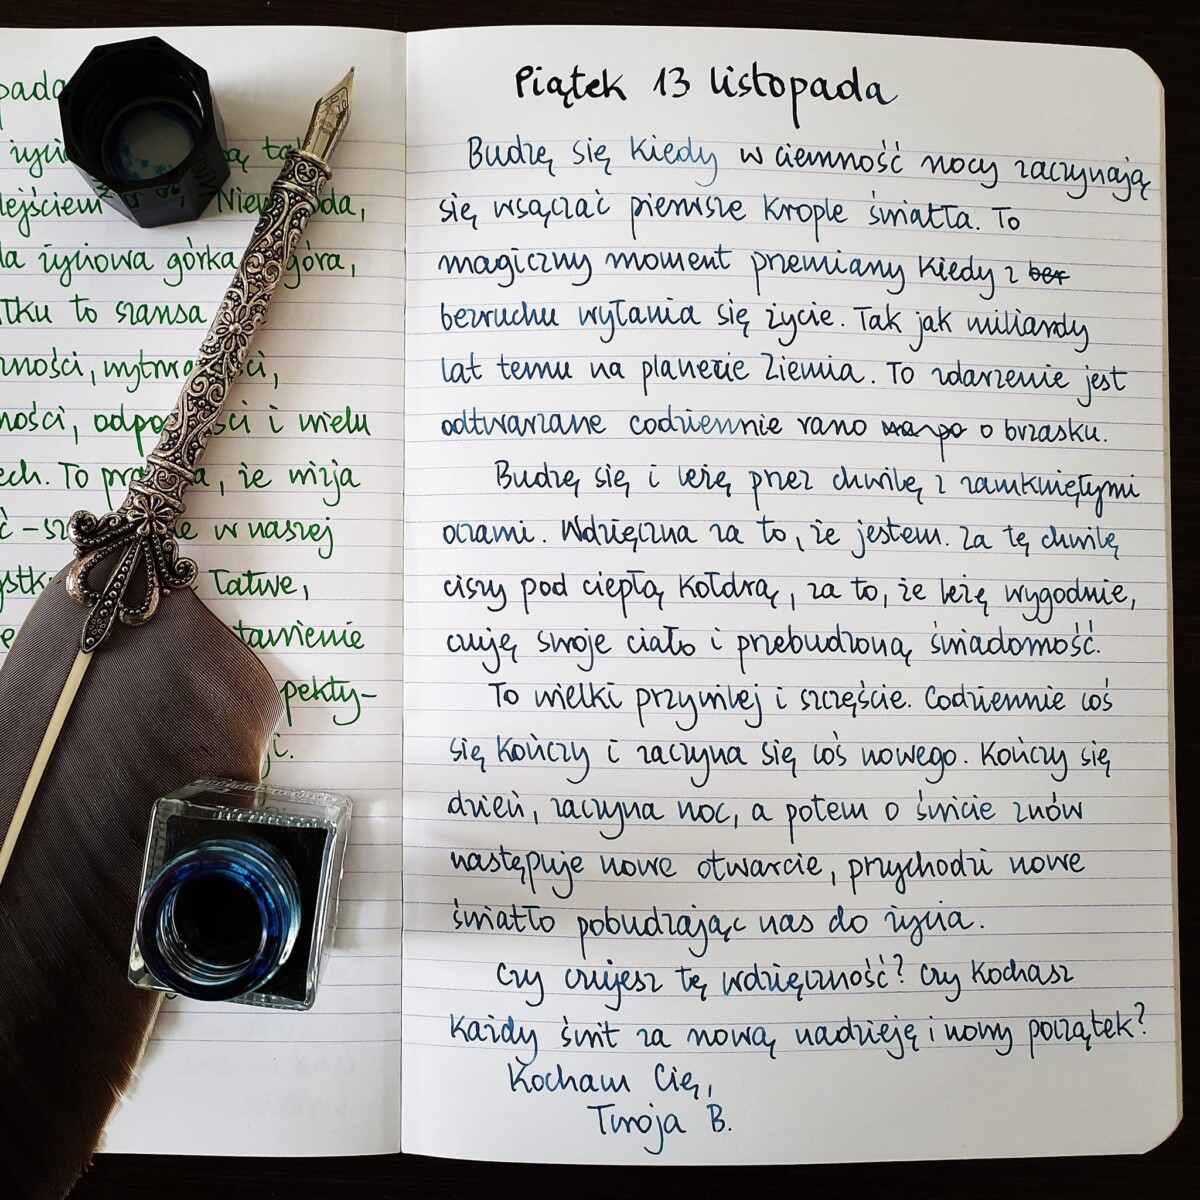 pada
życi ą tak
ejściem Niew oda,
la życiowa górka góra,
tku to szansa
ności, wytrwa ci,
ności, odpo ści i wielu
ech. To pra a, że wizja
ć – sz e w naszej
ystk łatwe,
e tawienie
pekty–
ji.
Piątek 13 listopada
Budzę się kiedy w ciemność nocy zaczynają
się wsączać pierwsze krople światła. To
magiczny moment przemiany kiedy z ber
bezruchu wyłania się życie. Tak jak miliardy
lat temu na planecie Ziemia. To zdarzenie jest
odtwarzane codziennie rano o brzasku.
Budzę się i leżę przez chwilę z zamkniętymi
oczami. Wdzięczna za to, że jestem. Za tę chwilę
ciszy pod ciepłą kołdrą, za to, że leżę wygodnie,
czuję swoje ciało i przebudzoną świadomość.
To wielki przywilej i szczęście. Codziennie coś
się kończy i zaczyna się coś nowego. Kończy się
dzień, zaczyna noc, a potem o świcie znów
następuje nowe otwarcie, przychodzi nowe
światło pobudzając nas do życia.
Czy czujesz tę wdzięczność? Czy kochasz
każdy świt za nową nadzieję i nowy początek?
Kocham Cię,
Twoja B.